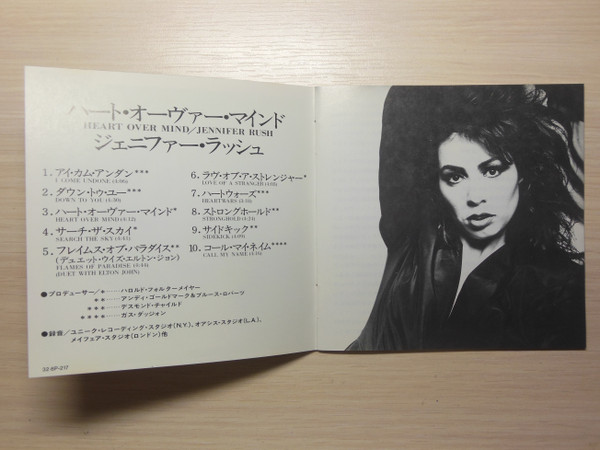 ハート・オーヴァー・マインド
HEART OVER MIND/JENNIFER RUSH
ジェニファー・ラッシュ
1. アイ・カム・アンダン***
I COME UNDONE (4:06)
2. ダウン・トゥ・ユー***
DOWN TO YOU (4:30)
3. ハート・オーヴァー・マインド*
HEART OVER MIND (4:12)
4. サーチ・ザ・スカイ*
SEARCH THE SKY (4:41)
5. フレイムス・オブ・パラダイス**
(デュエット・ウイズ・エルトン・ジョン)
FLAMES OF PARADISE (4:44)
(DUET WITH ELTON JOHN)
6. ラヴ・オブ・ア・ストレンジャー*
LOVE OF A STRANGER
7. ハートウォーズ***
HEARTWARS
8. ストロングホールド**
STRONGHOLD
9. サイドキック**
SIDEKICK
10. コール・マイ・ネイム****
CALL MY NAME
●プロデューサー/*……ハロルド・フォルターメイヤー
**……アンディ・ゴールドマーク&ブルース・ロバーツ
***……デスモンド・チャイルド
****……ガス・ダッジョン
●録音/ユニーク・レコーディング・スタジオ(N.Y.)、オアシス・スタジオ(L.A.)、
メイフェア・スタジオ(ロンドン)他
32・8P-217